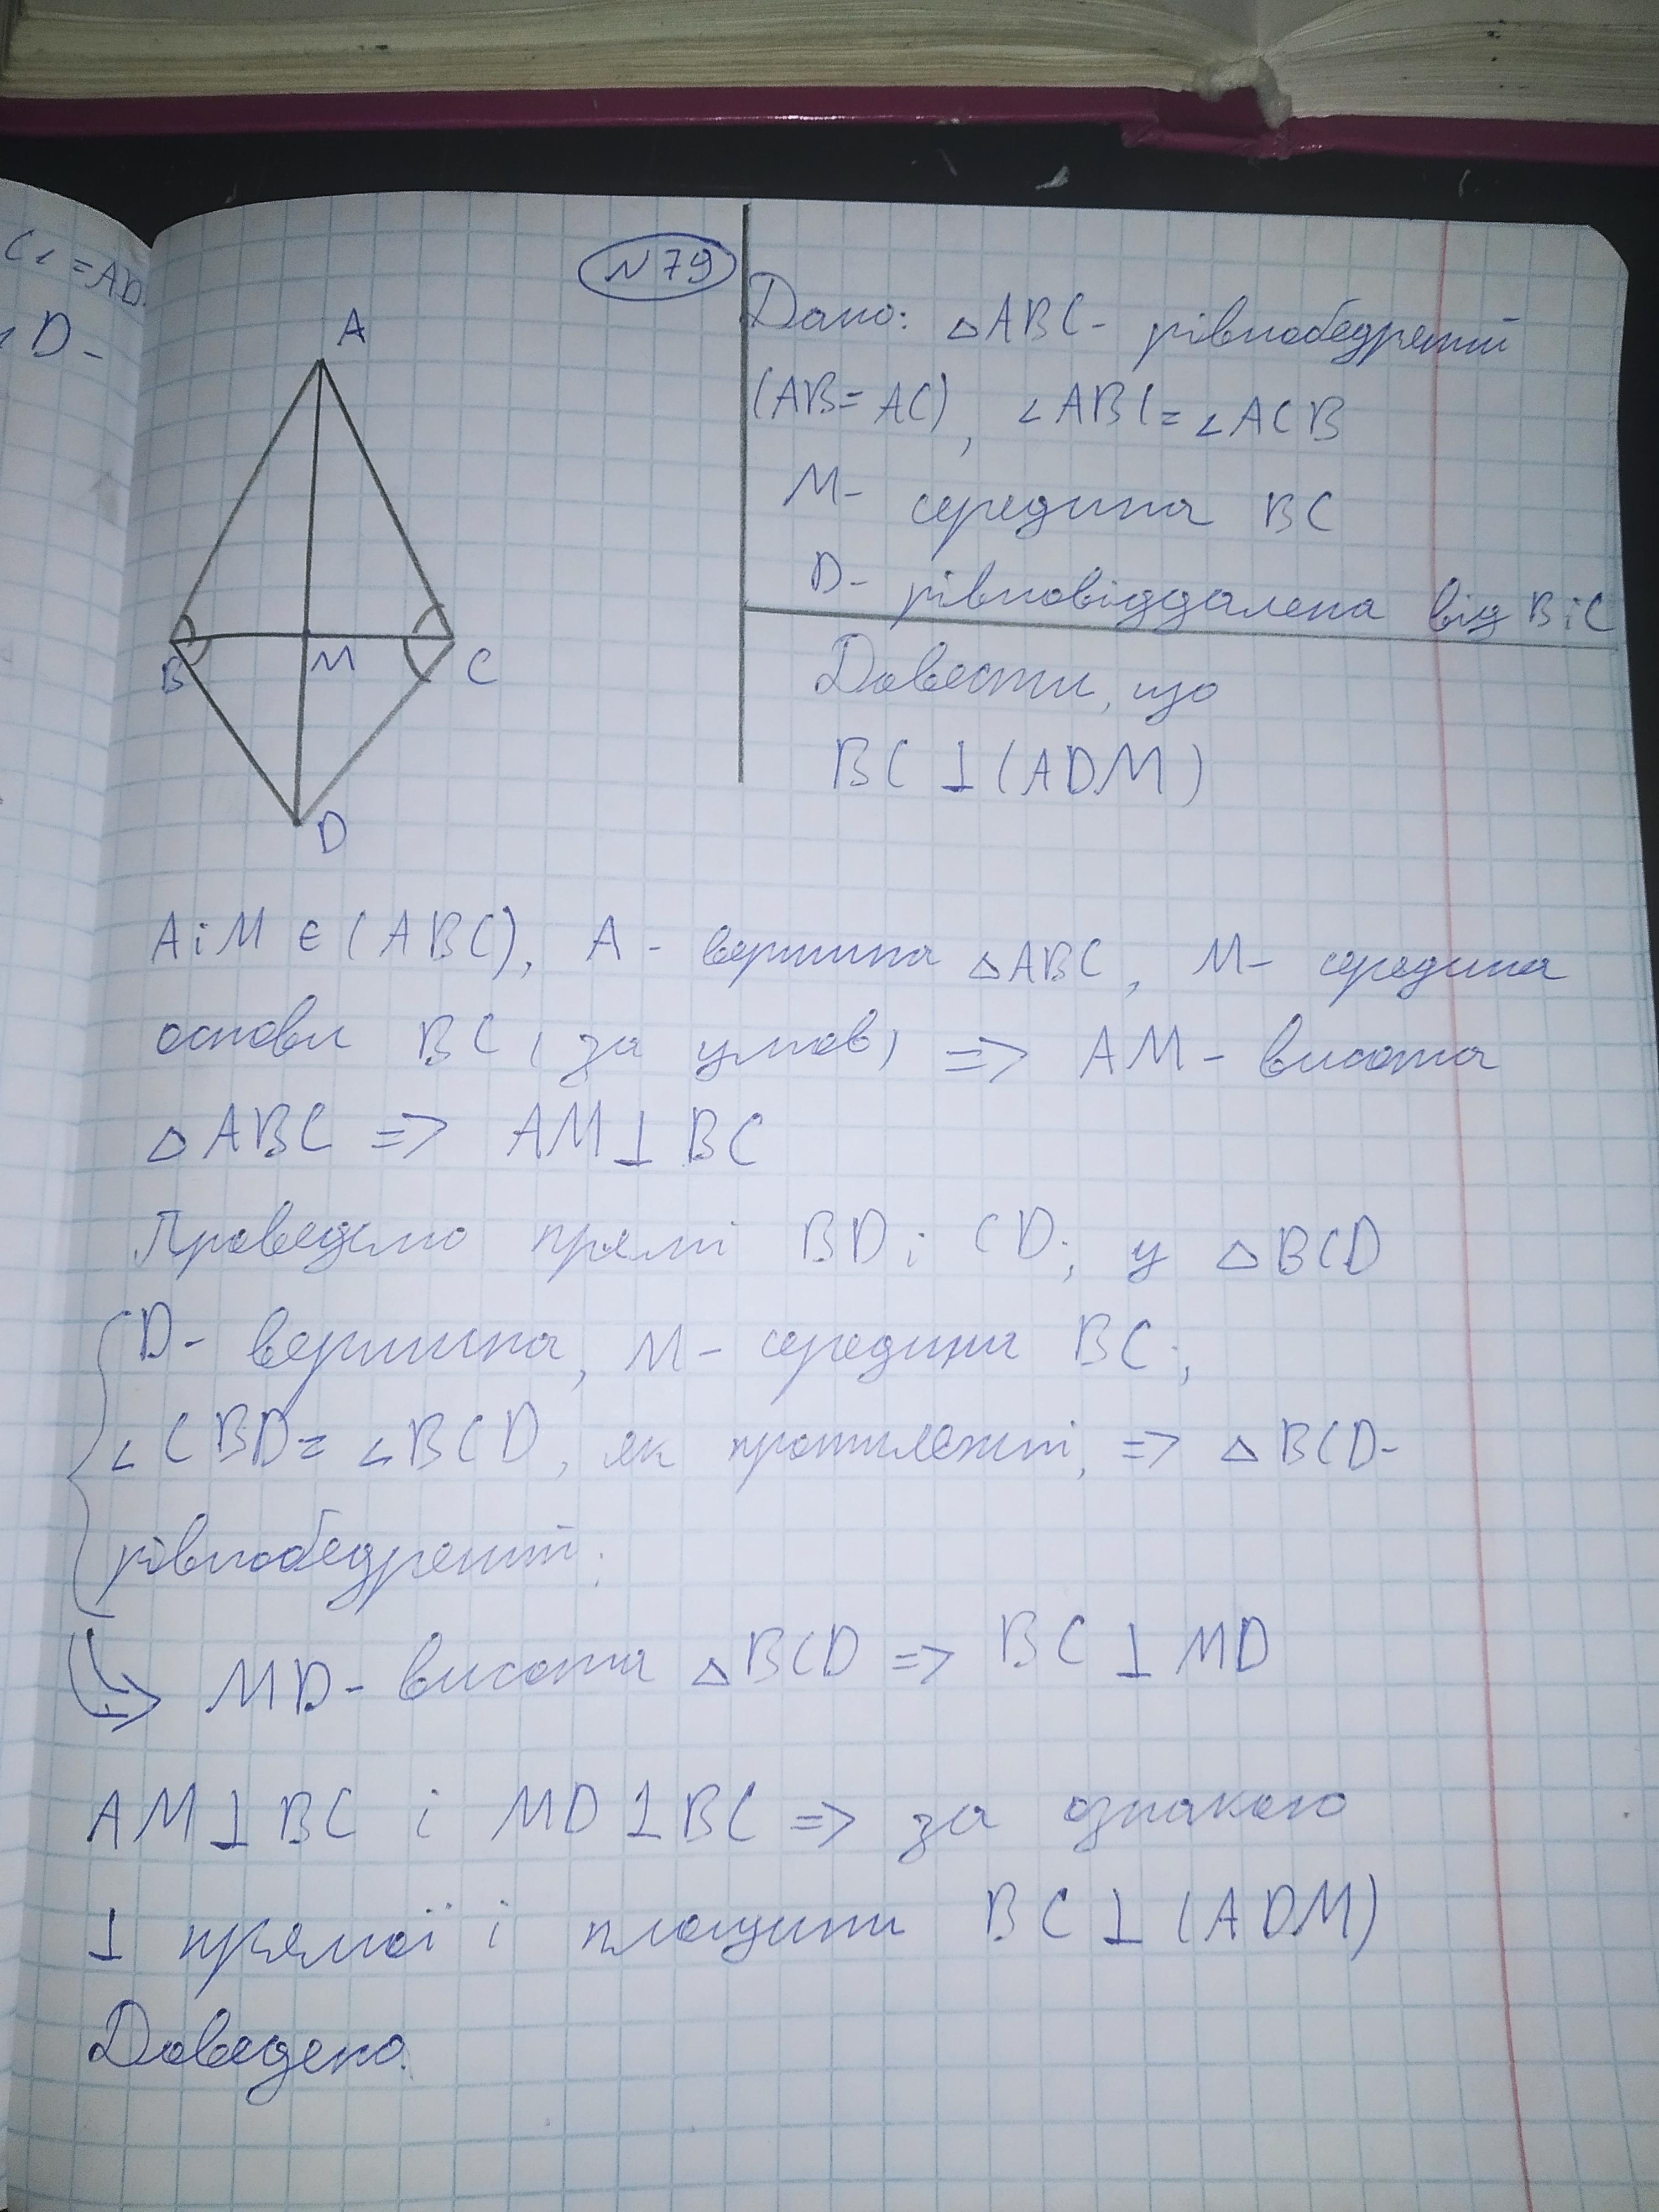 C₁ = AD
D -
N 79
A
B
M
C
D
Дано: △ABC - рівнобедрений
(AB = AC), ∠ABC = ∠ACB
M - середина BC
D - рівновіддалена від B і C
Довести, що
BC ⊥ (ADM)
A i M ∈ (ABC), A - вершина △ABC, M - середина
основи BC, за умов, => AM - висота
△ABC => AM ⊥ BC
Проведемо прямі BD i CD; у △BCD
D - вершина, M - середина BC;
∠CBD = ∠BCD, як протилежні, => △BCD -
рівнобедрений.
=> MD - висота △BCD => BC ⊥ MD
AM ⊥ BC і MD ⊥ BC => за ознакою
⊥ прямої і площини BC ⊥ (ADM)
Доведено.